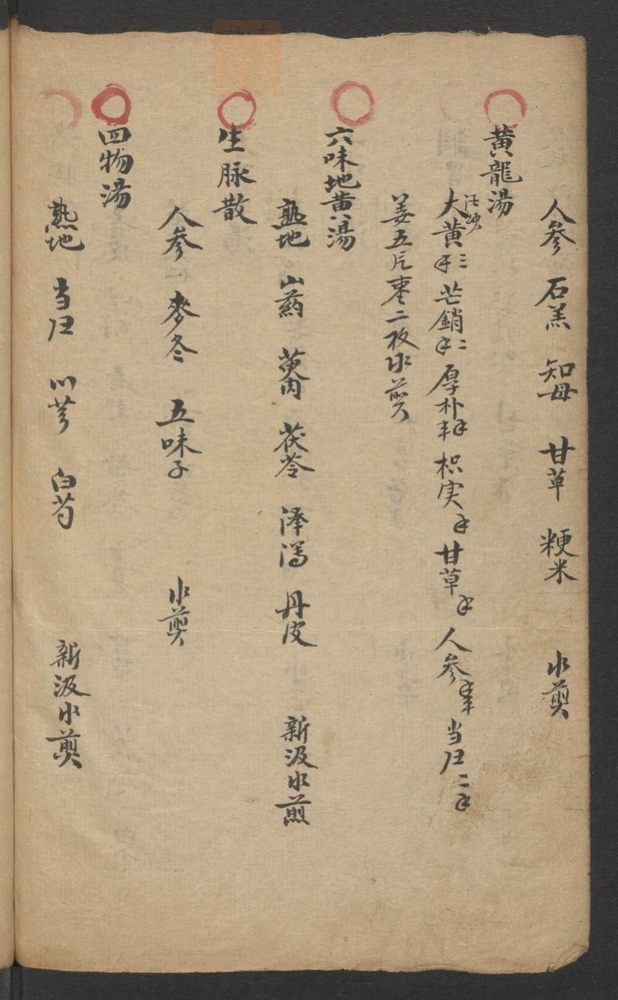 人参 石羔 知母 甘草 粳米 水煎
黄龍湯
大黄 酒炒 三𠂭 芒銷 二𠂭 厚朴 枳実 甘草 人参 当归 二
姜五片枣二枚水煎
六味地黄湯
熟地 山药 萸肉 茯苓 泽泻 丹皮 新汲水煎
生脉散
人参 麥冬 五味子 水煎
四物湯
熟地 当归 川芎 白芍 新汲水煎